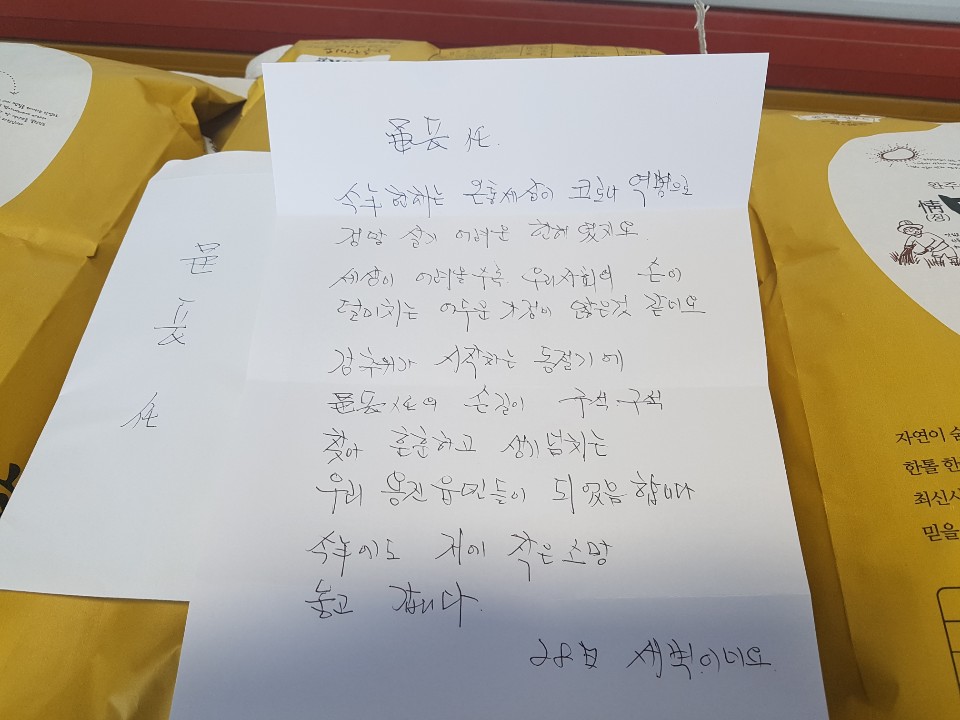 邑長任.
今年 한해는 온통세상이 코로나 역병으로
정말 살기 어려운 한해 였지요.
세상이 어려울수록 우리사회의 손이
덜미치는 어두운 가정이 많은것 같네요
강추위가 시작하는 동절기에
邑長任의 손길이 구석.구석
찾아 훈훈하고 생기넘치는
우리 용진읍민들이 되었음 합니다
今年에도 저에 작은소망
놓고 갑니다.
28日 새벽.이네요
邑
長
任
완주
情
(정)
자연이
한톨 한
믿을